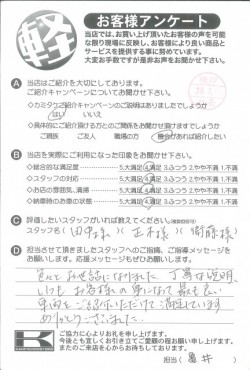 軽
お客様アンケート
当店では、お買い上げ頂いたお客様の声を可能
な限り現場に反映し、お客様により良い商品と
サービスを提供する事に努めています。
大変お手数ですが是非お声をお聞かせ下さい。
A 当店はご紹介を大切にしております。
ご紹介キャンペーンについてお聞かせ下さい
◆カミタケご紹介キャンペーンのご説明はありましたでしょうか
はい いいえ
◆具体的にご紹介頂ける方との関係をお聞かせ頂けますでしょうか
ご親族 ご友人 職場の方 機会があれば紹介したい
B 当店を実際にご利用になった印象をお聞かせ下さい
◆総合的な満足度 5.大満足 4.満足 3.ふつう 2.やや不満 1.不満
◆スタッフの対応 5.大満足 4.満足 3.ふつう 2.やや不満 1.不満
◆お店の雰囲気、清掃 5.大満足 4.満足 3.ふつう 2.やや不満 1.不満
◆納車時のお車の状態 5.大満足 4.満足 3.ふつう 2.やや不満 1.不満
C 評価したいスタッフがいれば教えてください。(複数回答可)
スタッフ名(田中様)(正木様)(衛藤様)
D 担当させて頂きましたスタッフへのご指摘、ご指導メッセージを
お願いします。応援メッセージもお待ちしております。
お世話になりました 丁寧な説明
ありがとうございました。
K
ご協力に心よりお礼を申し上げます。
今後とも宜しくお引き立てご愛顧の程お願い申し上げます。
またのご来店を心からお待ちしております。
担当(亀井)